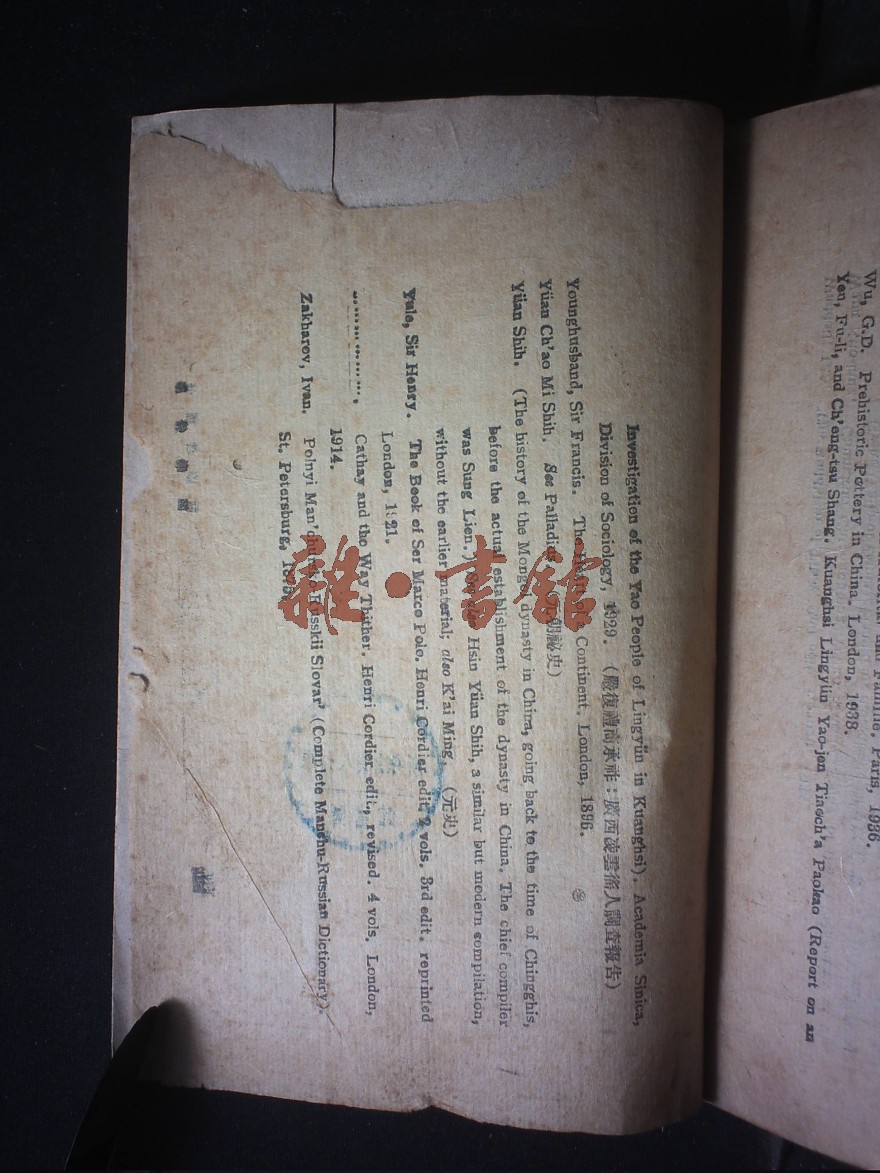 Wu, G.D. Prehistoric Pottery in China. London, 1938.
Yen, Fu-li, and Ch'eng-tsu Shang. Kuanghsi Lingyün Yao-jen Tiaoch'a Paokao (Report on an
Investigation of the Yao People of Lingyün in Kuanghsi). Academia Sinica,
Division of Sociology, 1929. (嚴復禮商承祖:廣西凌雲徭人調查報告)
Younghusband, Sir Francis. The Heart of a Continent. London, 1896.
Yüan Ch'ao Mi Shih. See Palladius. (元朝秘史)
Yüan Shih. (The history of the Mongol dynasty in China, going back to the time of Chingghis,
before the actual establishment of the dynasty in China. The chief compiler
was Sung Lien.) Hsin Yüan Shih, a similar but modern compilation,
without the earlier material; also K'ai Ming. (元史)
Yule, Sir Henry. The Book of Ser Marco Polo. Henri Cordier edit. 2 vols. 3rd edit. reprinted
London, 1921.
............, Cathay and the Way Thither. Henri Cordier edit., revised. 4 vols. London,
1914.
Zakharov, Ivan. Polnyi Man'chursko-Russkii Slovar' (Complete Manchu-Russian Dictionary).
St. Petersburg,